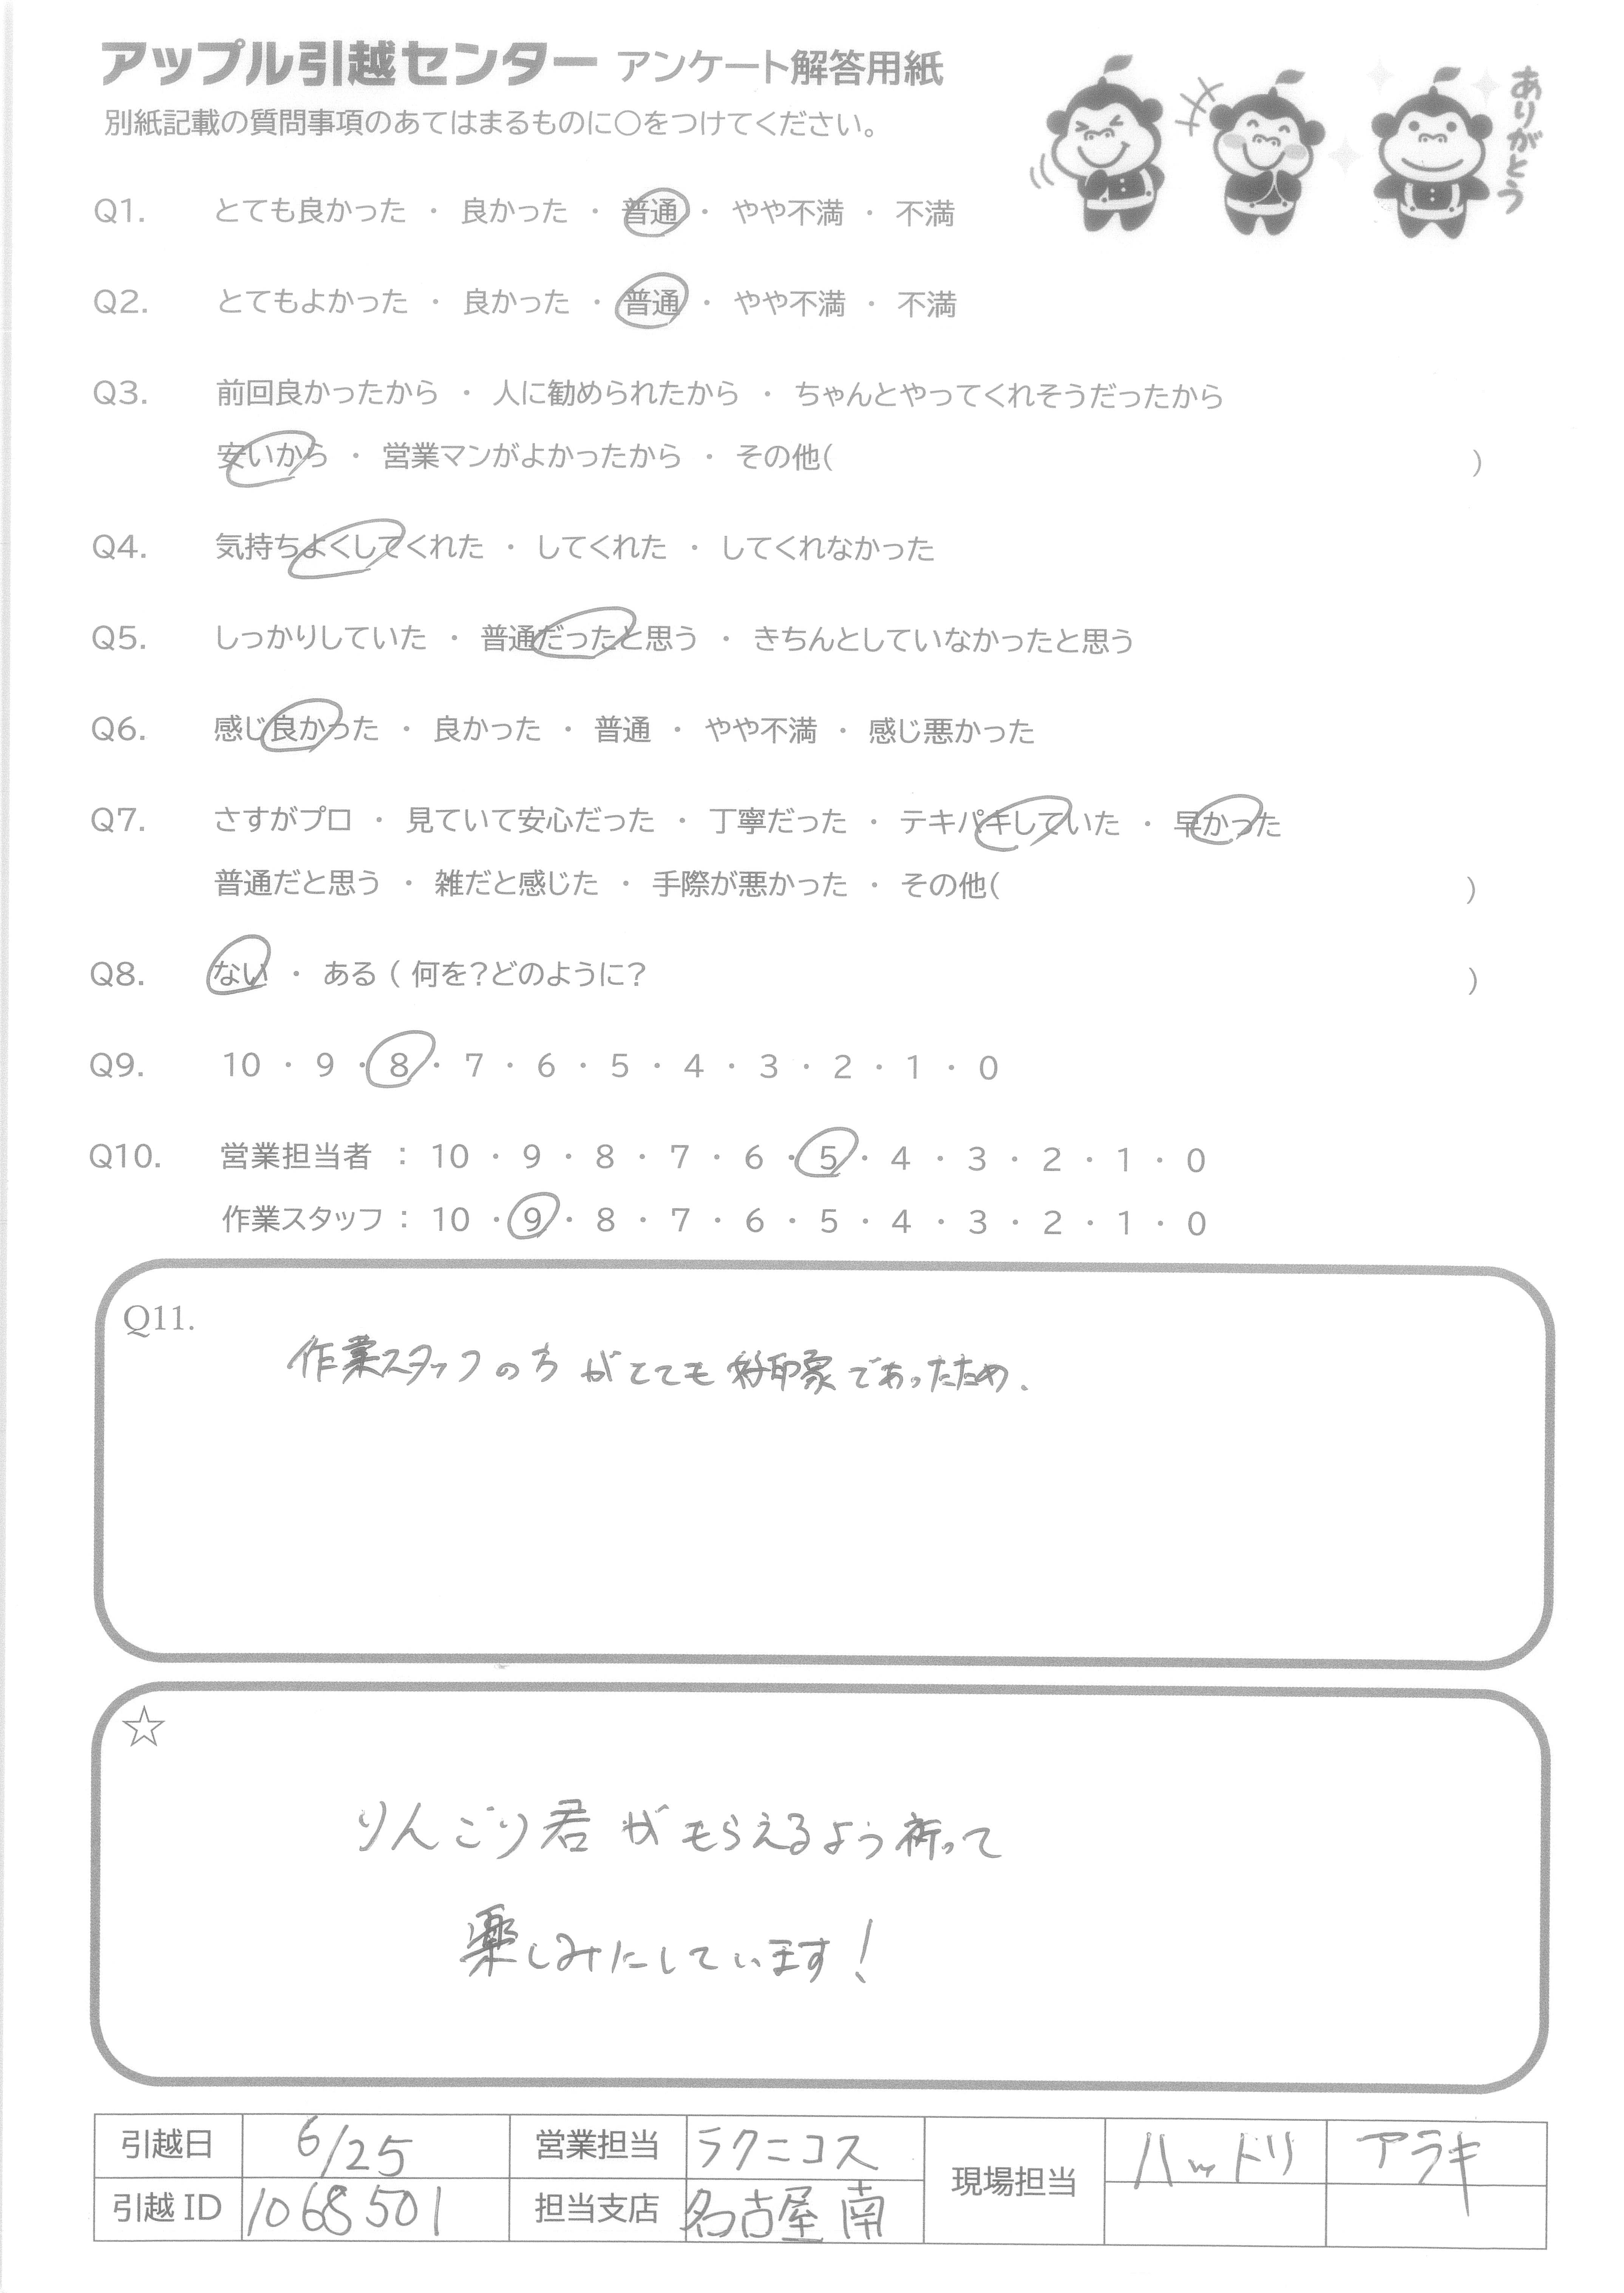 アップル引越センター アンケート解答用紙
別紙記載の質問事項のあてはまるものに○をつけてください。
ありがとう
Q1. とても良かった ・ 良かった ・ 普通 ・ やや不満 ・ 不満
Q2. とてもよかった ・ 良かった ・ 普通 ・ やや不満 ・ 不満
Q3. 前回良かったから ・ 人に勧められたから ・ ちゃんとやってくれそうだったから
安いから ・ 営業マンがよかったから ・ その他( )
Q4. 気持ちよくしてくれた ・ してくれた ・ してくれなかった
Q5. しっかりしていた ・ 普通だったと思う ・ きちんとしていなかったと思う
Q6. 感じ良かった ・ 良かった ・ 普通 ・ やや不満 ・ 感じ悪かった
Q7. さすがプロ ・ 見ていて安心だった ・ 丁寧だった ・ テキパキしていた ・ 早かった
普通だと思う ・ 雑だと感じた ・ 手際が悪かった ・ その他( )
Q8. ない ・ ある ( 何を?どのように? )
Q9. 10 ・ 9 ・ 8 ・ 7 ・ 6 ・ 5 ・ 4 ・ 3 ・ 2 ・ 1 ・ 0
Q10. 営業担当者 : 10 ・ 9 ・ 8 ・ 7 ・ 6 ・ 5 ・ 4 ・ 3 ・ 2 ・ 1 ・ 0
作業スタッフ : 10 ・ 9 ・ 8 ・ 7 ・ 6 ・ 5 ・ 4 ・ 3 ・ 2 ・ 1 ・ 0
Q11.
作業スタッフの方がとても好印象であったため.
☆
りんごり君がもらえるよう祈って
楽しみにしています!
引越日 6/25 営業担当 ラクニコス 現場担当 ハットリ アラキ
引越ID 1068501 担当支店 名古屋南